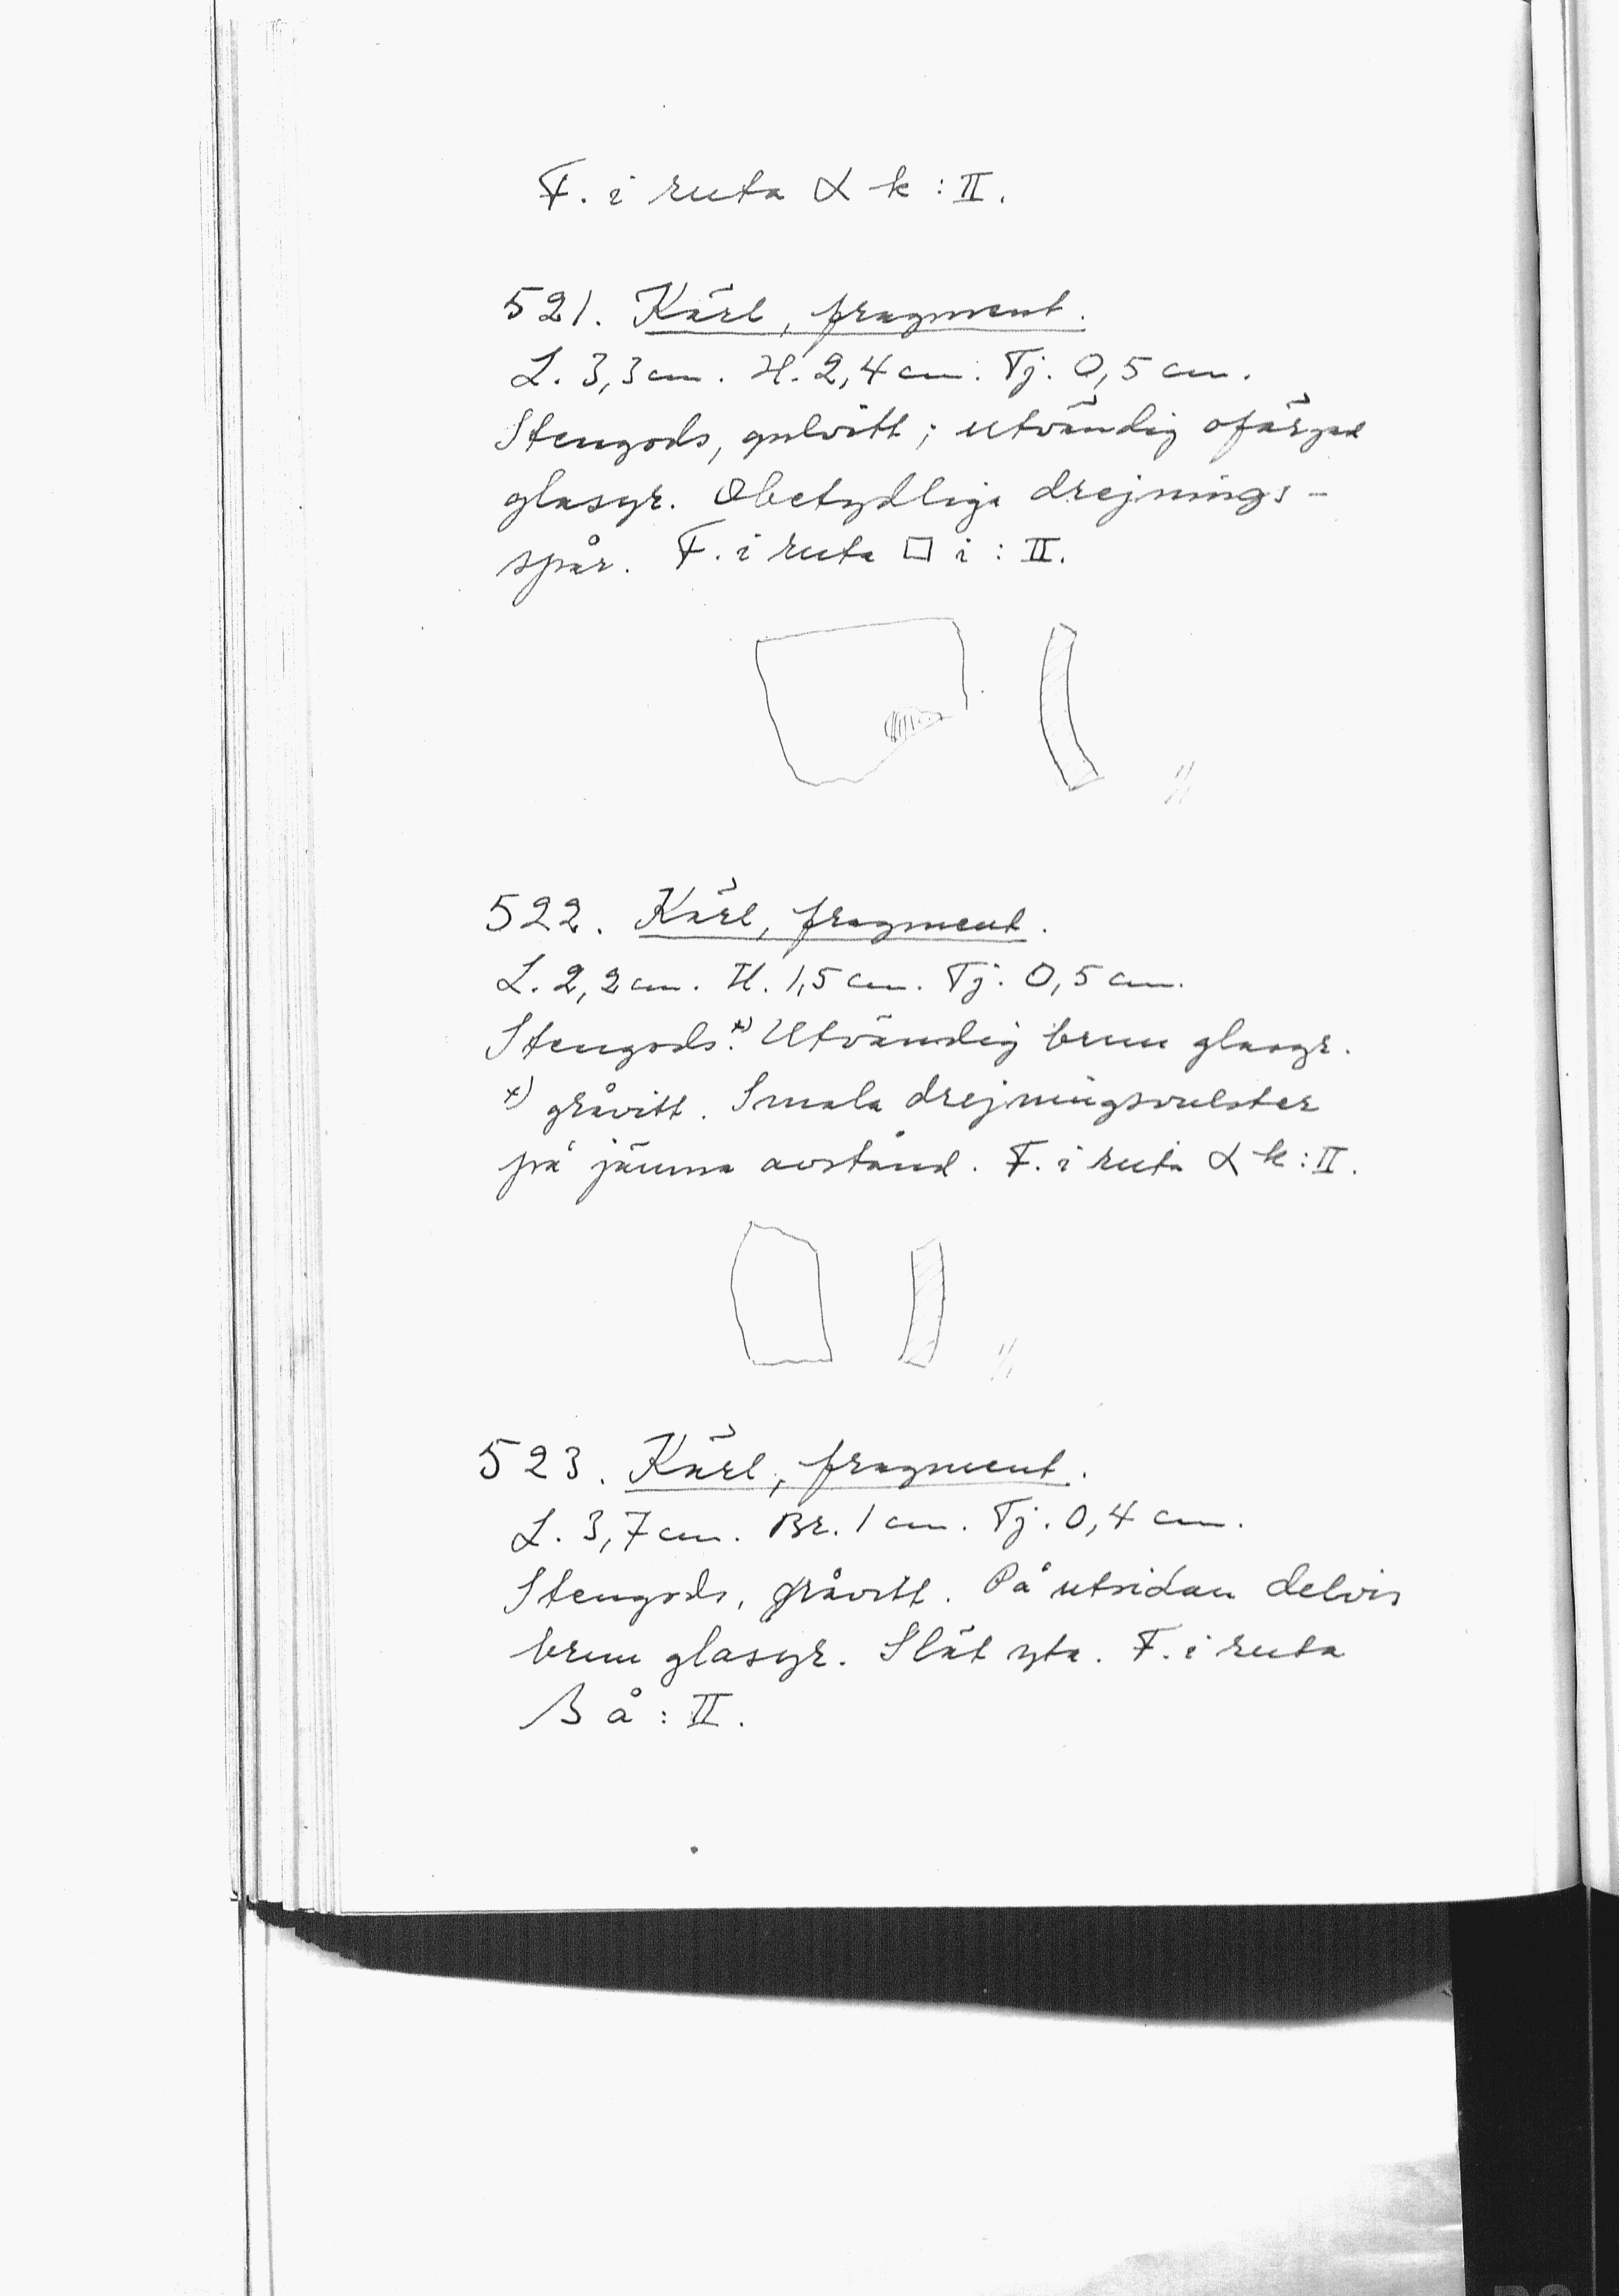 F. i ruta α k : II.
521. Kärl, fragment.
L. 3,3 cm. H. 2,4 cm. Tj. 0,5 cm.
Stengods, gulvitt; utvändig ofärgad
glasyr. Obetydliga drejnings-
spår. F. i ruta □ i : II.
522. Kärl, fragment.
L. 2,2 cm. H. 1,5 cm. Tj. 0,5 cm.
Stengods.x) Utvändig brun glasyr.
x) gråvitt. Smala drejningsvulster
på jämna avstånd. F. i ruta α k : II.
523. Kärl, fragment.
L. 3,7 cm. Br. 1 cm. Tj. 0,4 cm.
Stengods, gråvitt. På utsidan delvis
brun glasyr. Slät yta. F. i ruta
β å : II.